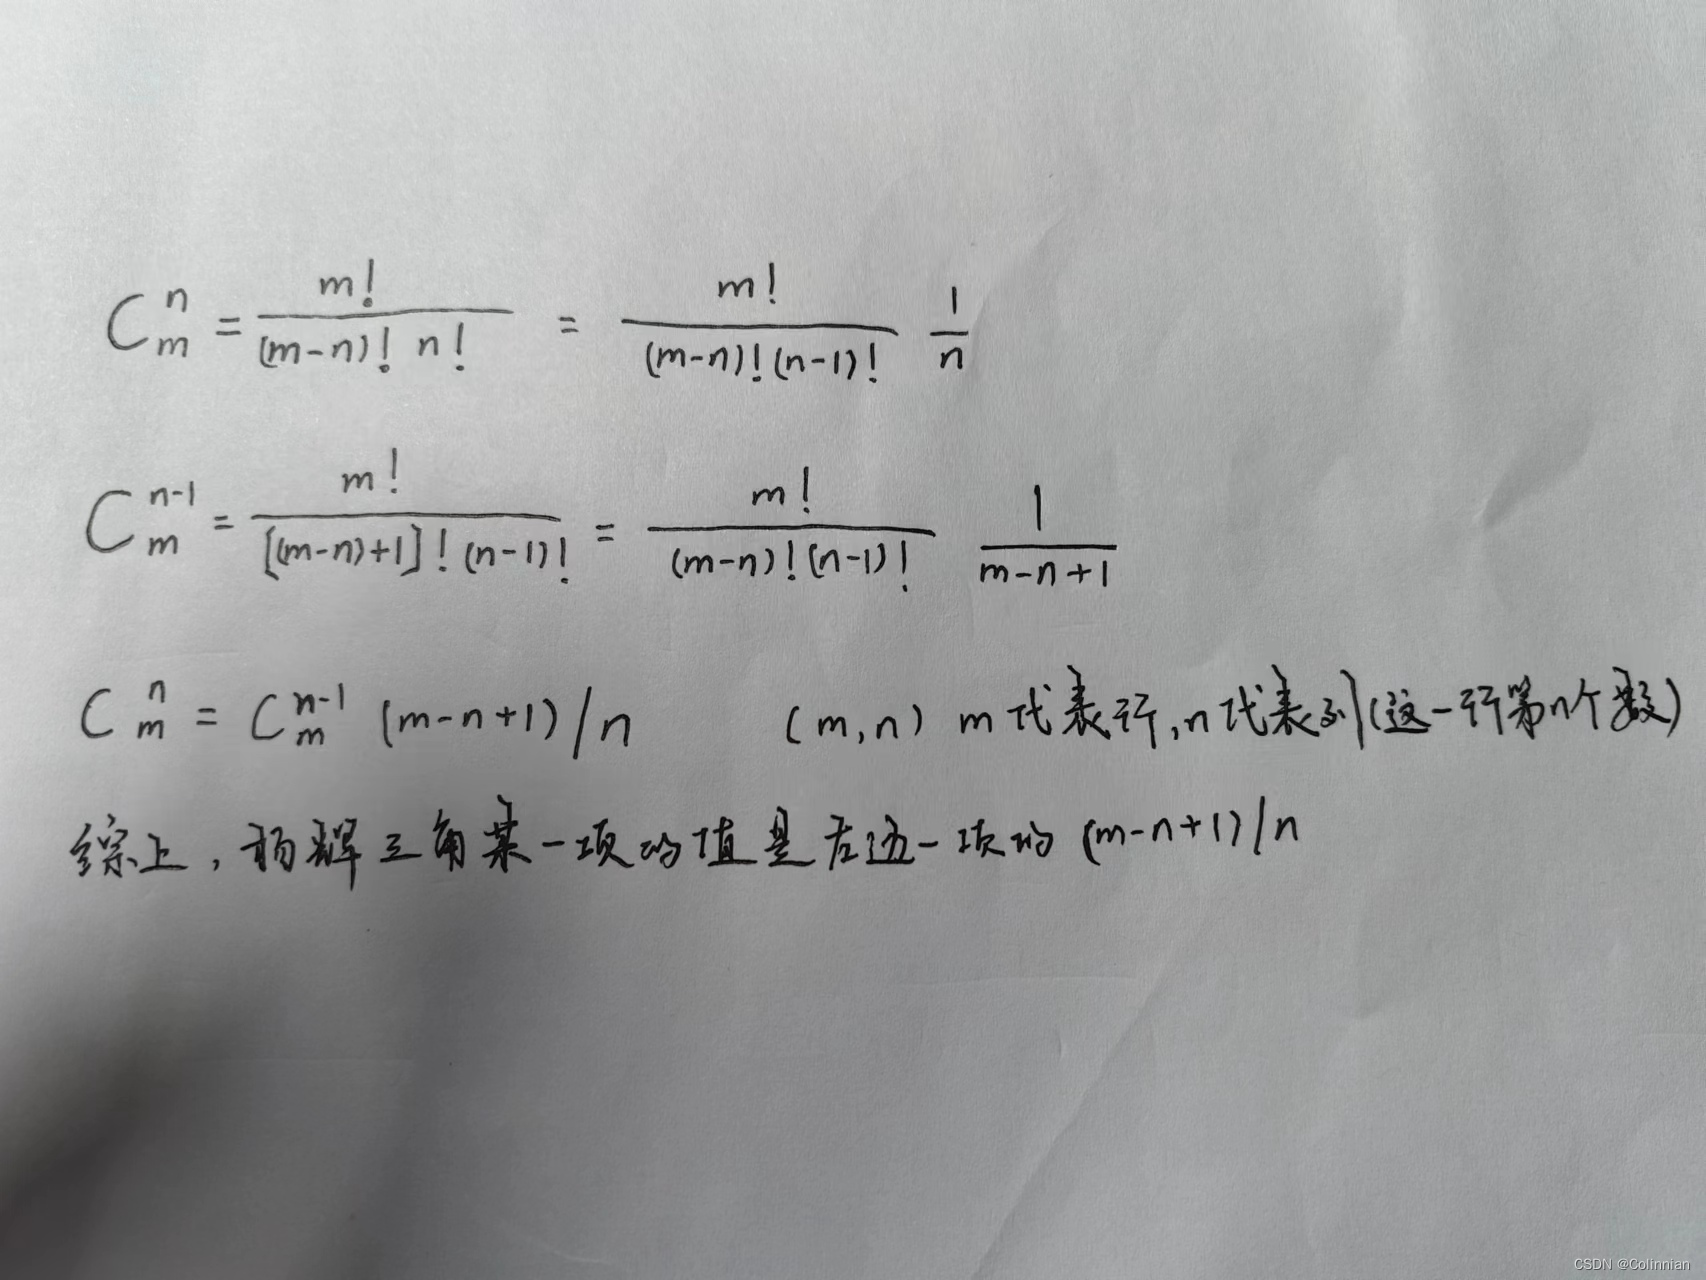 C_m^n = m! / ((m-n)! n!) = m! / ((m-n)!(n-1)!) 1/n
C_m^{n-1} = m! / ([(m-n)+1]!(n-1)!) = m! / ((m-n)!(n-1)!) 1/(m-n+1)
C_m^n = C_m^{n-1} (m-n+1)/n (m,n) m代表行,n代表列(这一行第n个数)
综上,杨辉三角某一项的值是左边一项的(m-n+1)/n
CSDN @Colinnian